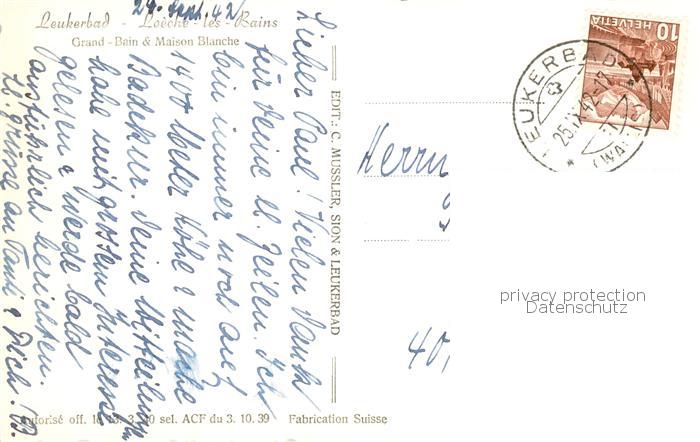 24. Sept. 42
Leukerbad - Loèche-les-Bains
Grand-Bain & Maison Blanche
Lieber Paul! Vielen Dank
für Deine lb. Zeilen. Ich
bin immer noch auf
1400 Meter Höhe & mache
Badekur. Deine Mitteilungen
habe mit grossem Interesse
gelesen & werde bald
ausführlich berichten.
Lb. Grüsse an Tanti & Dich. B.
EDIT.: C. MUSSLER, SION & LEUKERBAD
Autorisé off. sel. ACF du 3. 10. 39 Fabrication Suisse
HELVETIA
10
LEUKERBAD
25.IX.42
(WALLIS)
Herrn
40,
privacy protection
Datenschutz